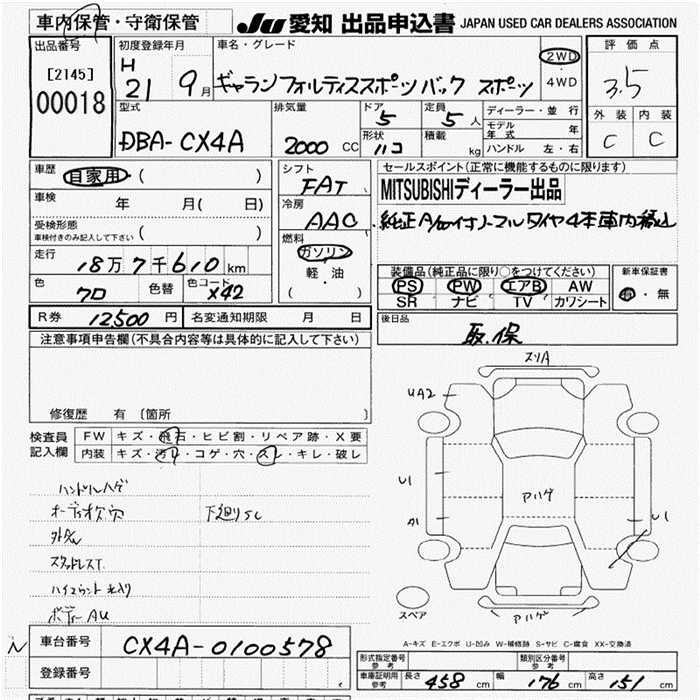 車内保管・守衛保管
JU 愛知 出品申込書 JAPAN USED CAR DEALERS ASSOCIATION
出品番号
[2145]
00018
初度登録年月
H
21 9月
車名・グレード
ギャランフォルティススポーツバック スポーツ
2WD
4WD
評価点
3.5
外装 内装
C C
型式
DBA-CX4A
排気量
2000 CC
ドア
5
定員
5人
形状
ハコ
積載
kg
ディーラー・並行
モデル年式 年
ハンドル 左・右
車歴
自家用 ( )
車検
年 月( 日)
受検形態
車検付きのみ記入して下さい ( )
走行
18万7千610km
色
クロ
色替
色コード
X42
シフト
FAT
冷房
AAC
燃料
ガソリン
軽・油
( )
セールスポイント(正常に機能するものに限ります)
MITSUBISHIディーラー出品
純正A/W付ノーマルタイヤ4本車内積込
装備品(純正品に限り○をつけてください)
PS PW エアB AW
SR ナビ TV カワシート
新車保証書
有・無
R券 12,500円
名変通知期限 月 日
後日品
取.保
注意事項申告欄(不具合内容等は具体的に記入して下さい)
修復歴 有 〔箇所 〕
検査員
記入欄
FW キズ・飛石・ヒビ割・リペア跡・X要
内装 キズ・汚れ・コゲ・穴・スレ・キレ・破レ
ハンドルハゲ
オーディオ欠穴
下廻りSC
スタッドレスT.
ボディーAU
スリA
UA2
U1
A1
U1
アハゲ
アハゲ
スペア
A-キズ E-エクボ U-凹み W-補修跡 S-サビ C-腐食 XX-交換済
N
車台番号
CX4A-0100578
登録番号
形式指定番号
参考
類別区分番号
参考
車庫証明用
参考
長さ 458 cm 幅 176 cm 高さ 151 cm